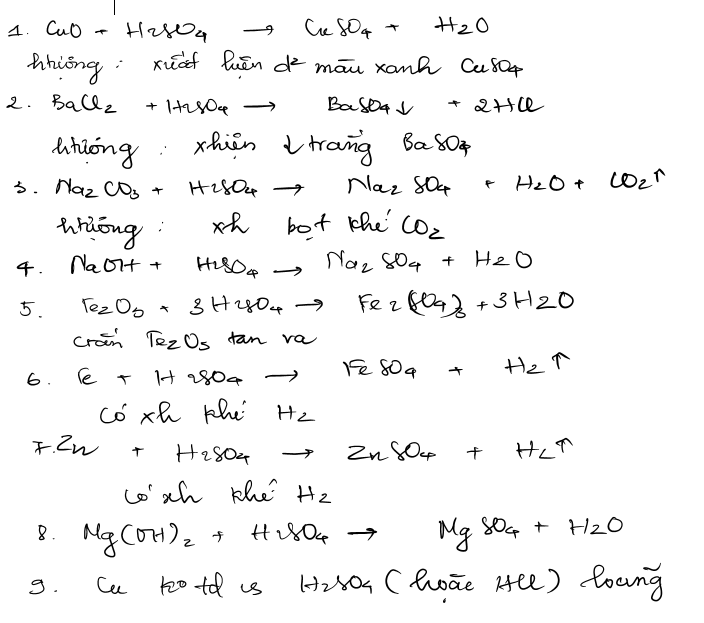 1. CuO + H2SO4 → CuSO4 + H2O
htượng : xuất hiện d² màu xanh CuSO4
2. BaCl2 + H2SO4 → BaSO4↓ + 2HCl
htượng : xhiện ↓ trắng BaSO4
3. Na2CO3 + H2SO4 → Na2SO4 + H2O + CO2↑
htượng : xh bọt khí CO2
4. NaOH + H2SO4 → Na2SO4 + H2O
5. Fe2O3 + 3H2SO4 → Fe2(SO4)3 + 3H2O
crắn Fe2O3 tan ra
6. Fe + H2SO4 → FeSO4 + H2↑
có xh khí H2
7. Zn + H2SO4 → ZnSO4 + H2↑
có xh khí H2
8. Mg(OH)2 + H2SO4 → MgSO4 + H2O
9. Cu ko td vs H2SO4 (hoặc HCl) loãng